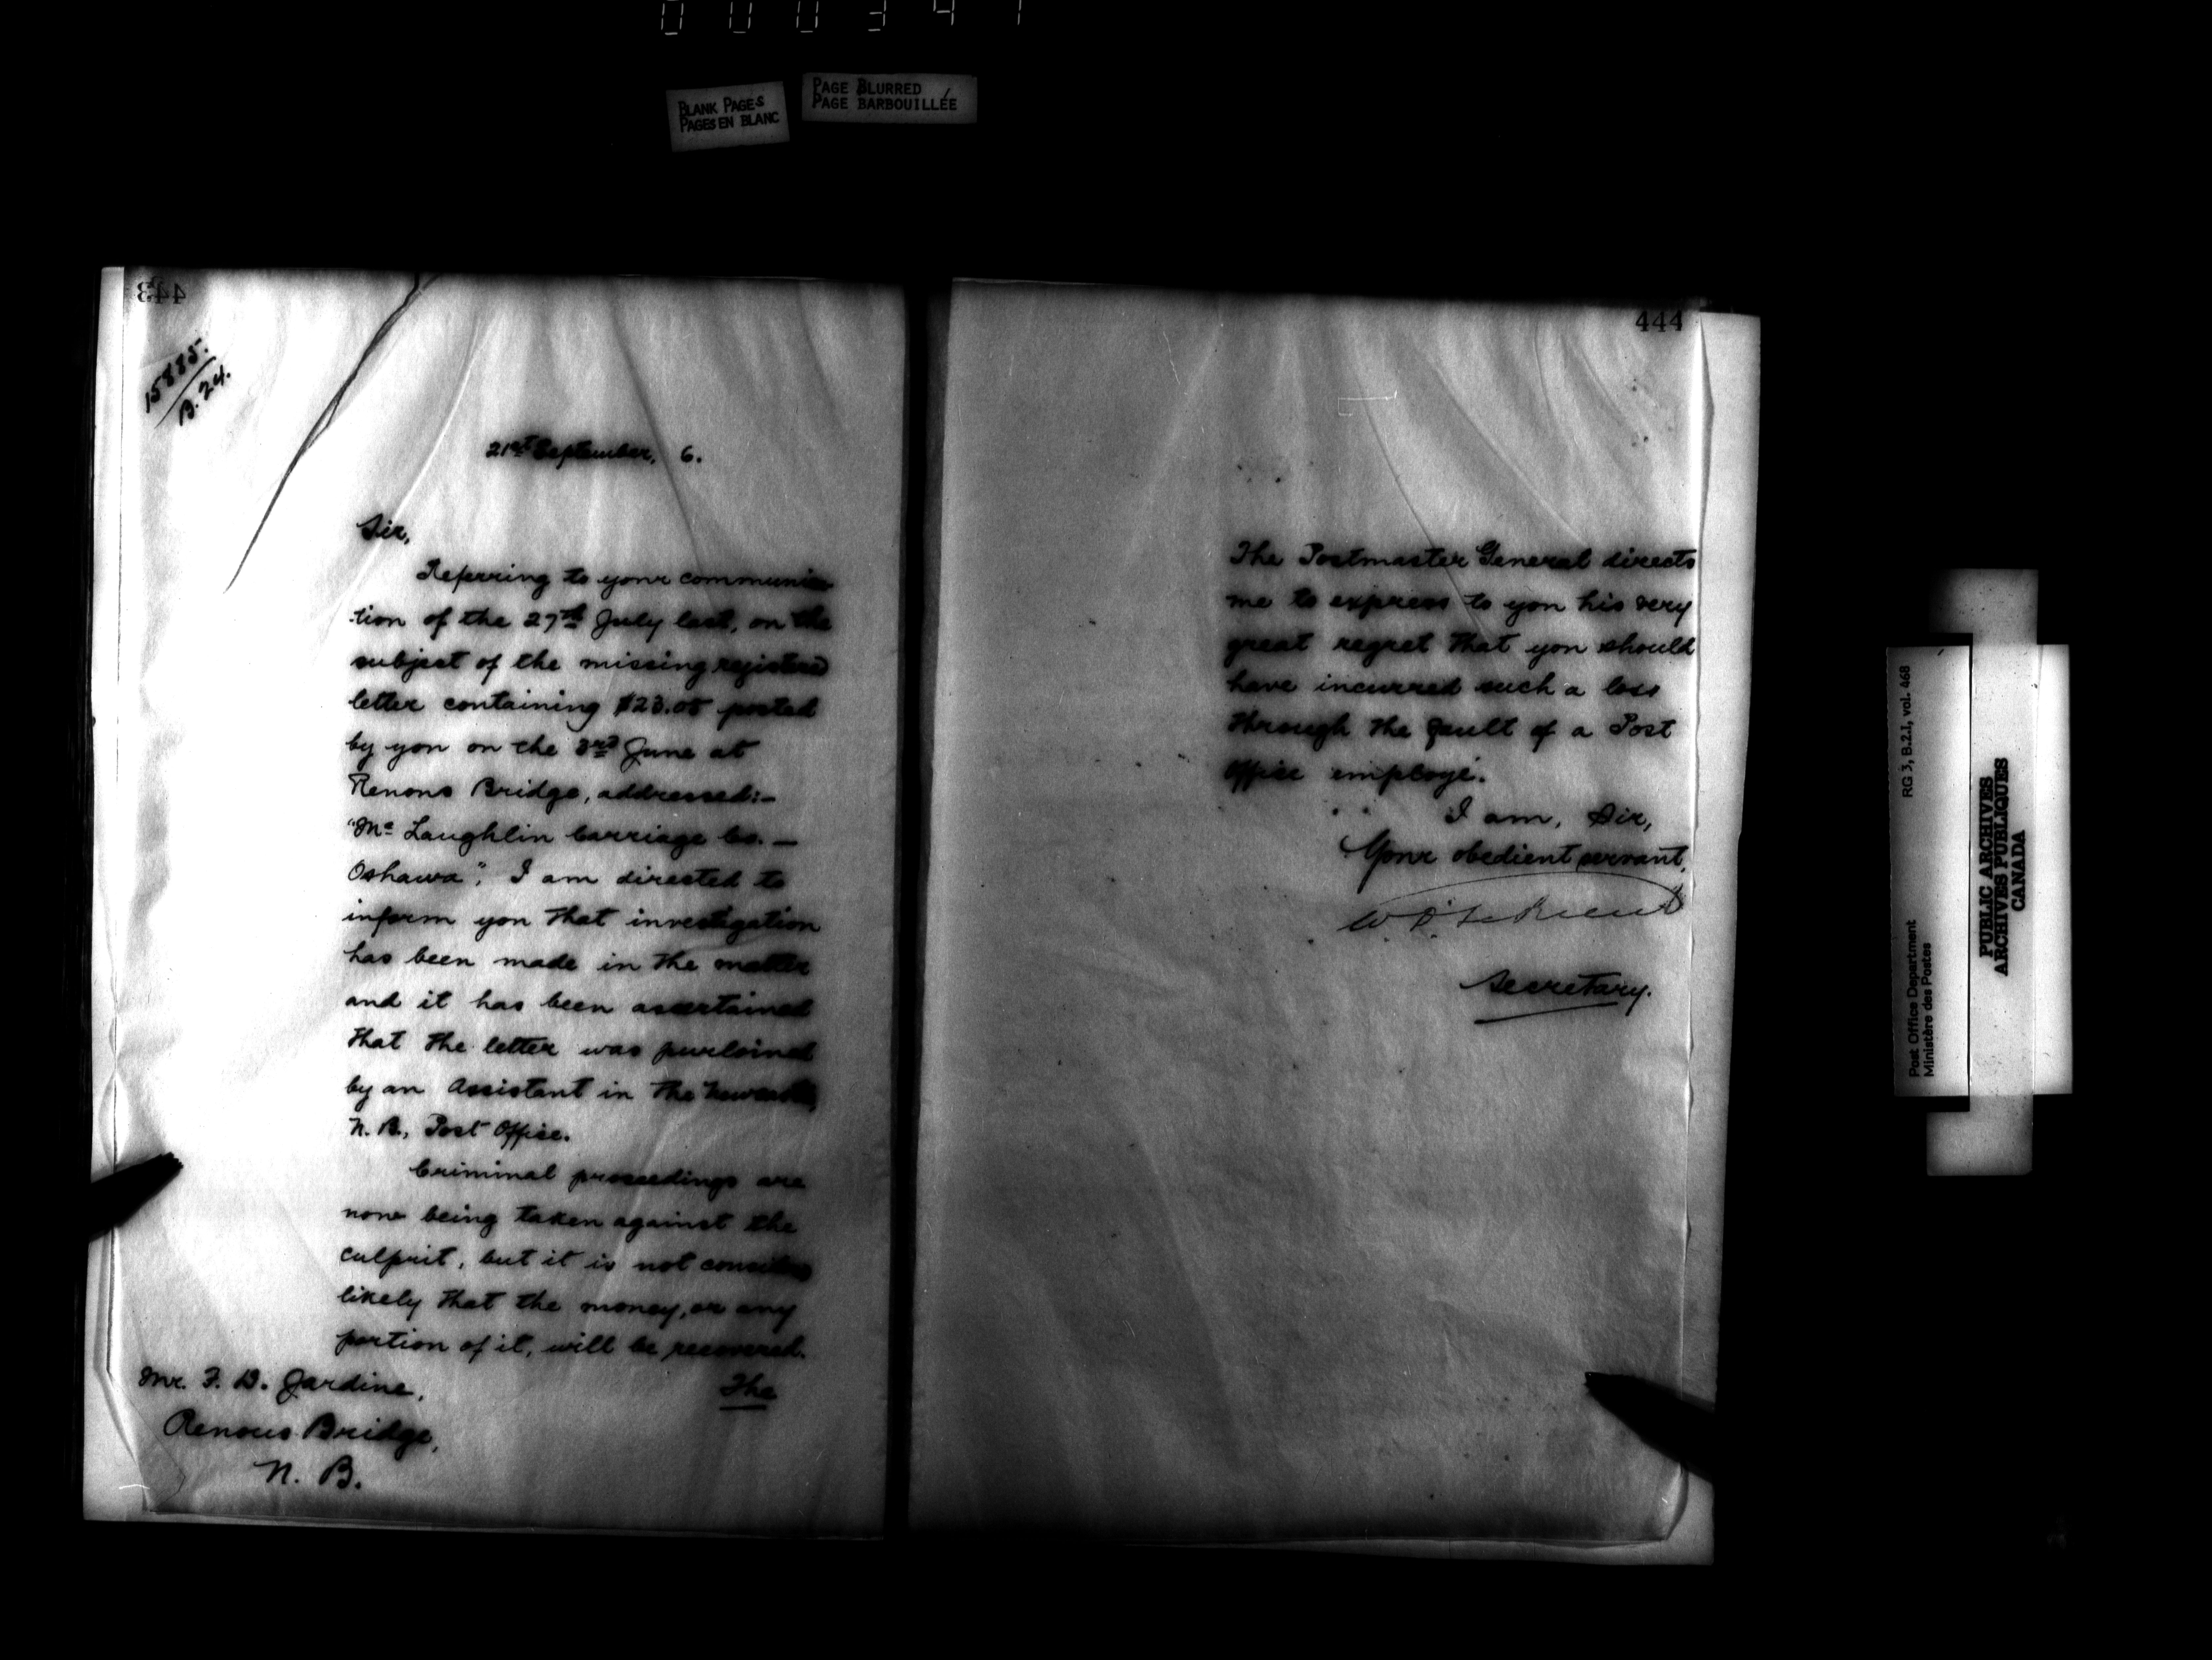 000341
BLANK PAGES
PAGES EN BLANC
PAGE BLURRED
PAGE BARBOUILLÉE
443
15885.
B. 24.
21st September, 6.
Sir,
Referring to your communica-
tion of the 27th July last, on the
subject of the missing registered
letter containing $23.05 posted
by you on the 3rd June at
Renous Bridge, addressed:-
"Mc Laughlin Carriage Co. —
Oshawa", I am directed to
inform you that investigation
has been made in the matter
and it has been ascertained
that the letter was purloined
by an Assistant in the Newcastle,
N. B., Post Office.
Criminal proceedings are
now being taken against the
culprit, but it is not considered
likely that the money, or any
portion of it, will be recovered.
The
Mr. F. D. Jardine,
Renous Bridge,
N. B.
444
The Postmaster General directs
me to express to you his very
great regret that you should
have incurred such a loss
through the fault of a Post
Office employé.
I am, Sir,
Your obedient servant,
Secretary.
RG 3, B.2.1, vol. 468
Post Office Department
Ministère des Postes
PUBLIC ARCHIVES
ARCHIVES PUBLIQUES
CANADA